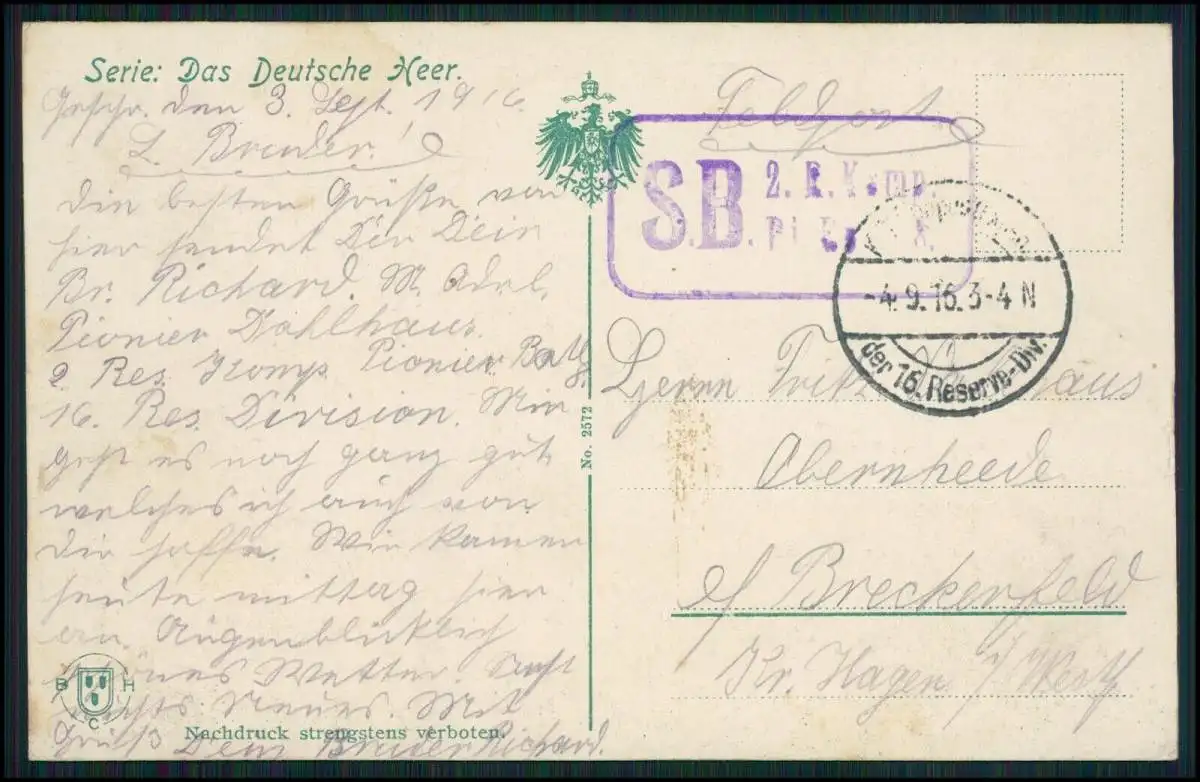 Serie: Das Deutsche Heer.
Geschr. den 3. Sept. 1916
L. Bruder!
Die besten Grüße von
hier sendet Dir Dein
Br. Richard. M. Adr.
Pionier Dahlhaus
2 Res. Komp. Pionier Batl.
16. Res. Division. Mir
geht es noch ganz gut
welches ich auch von
dir hoffe. Wir kamen
heute mittag hier
an. Augenblicklich
schönes Wetter. Sonst
nichts Neues. Mit
Gruß Dein Bruder Richard.
B H C
Nachdruck strengstens verboten.
No. 2572
Feldpost
S.B. 2. R. Komp.
-4.9.16.3-4 N
der 16. Reserve-Div.
Herrn Fritz
Obernheede
b/ Breckerfeld
Kr. Hagen i/ Westf